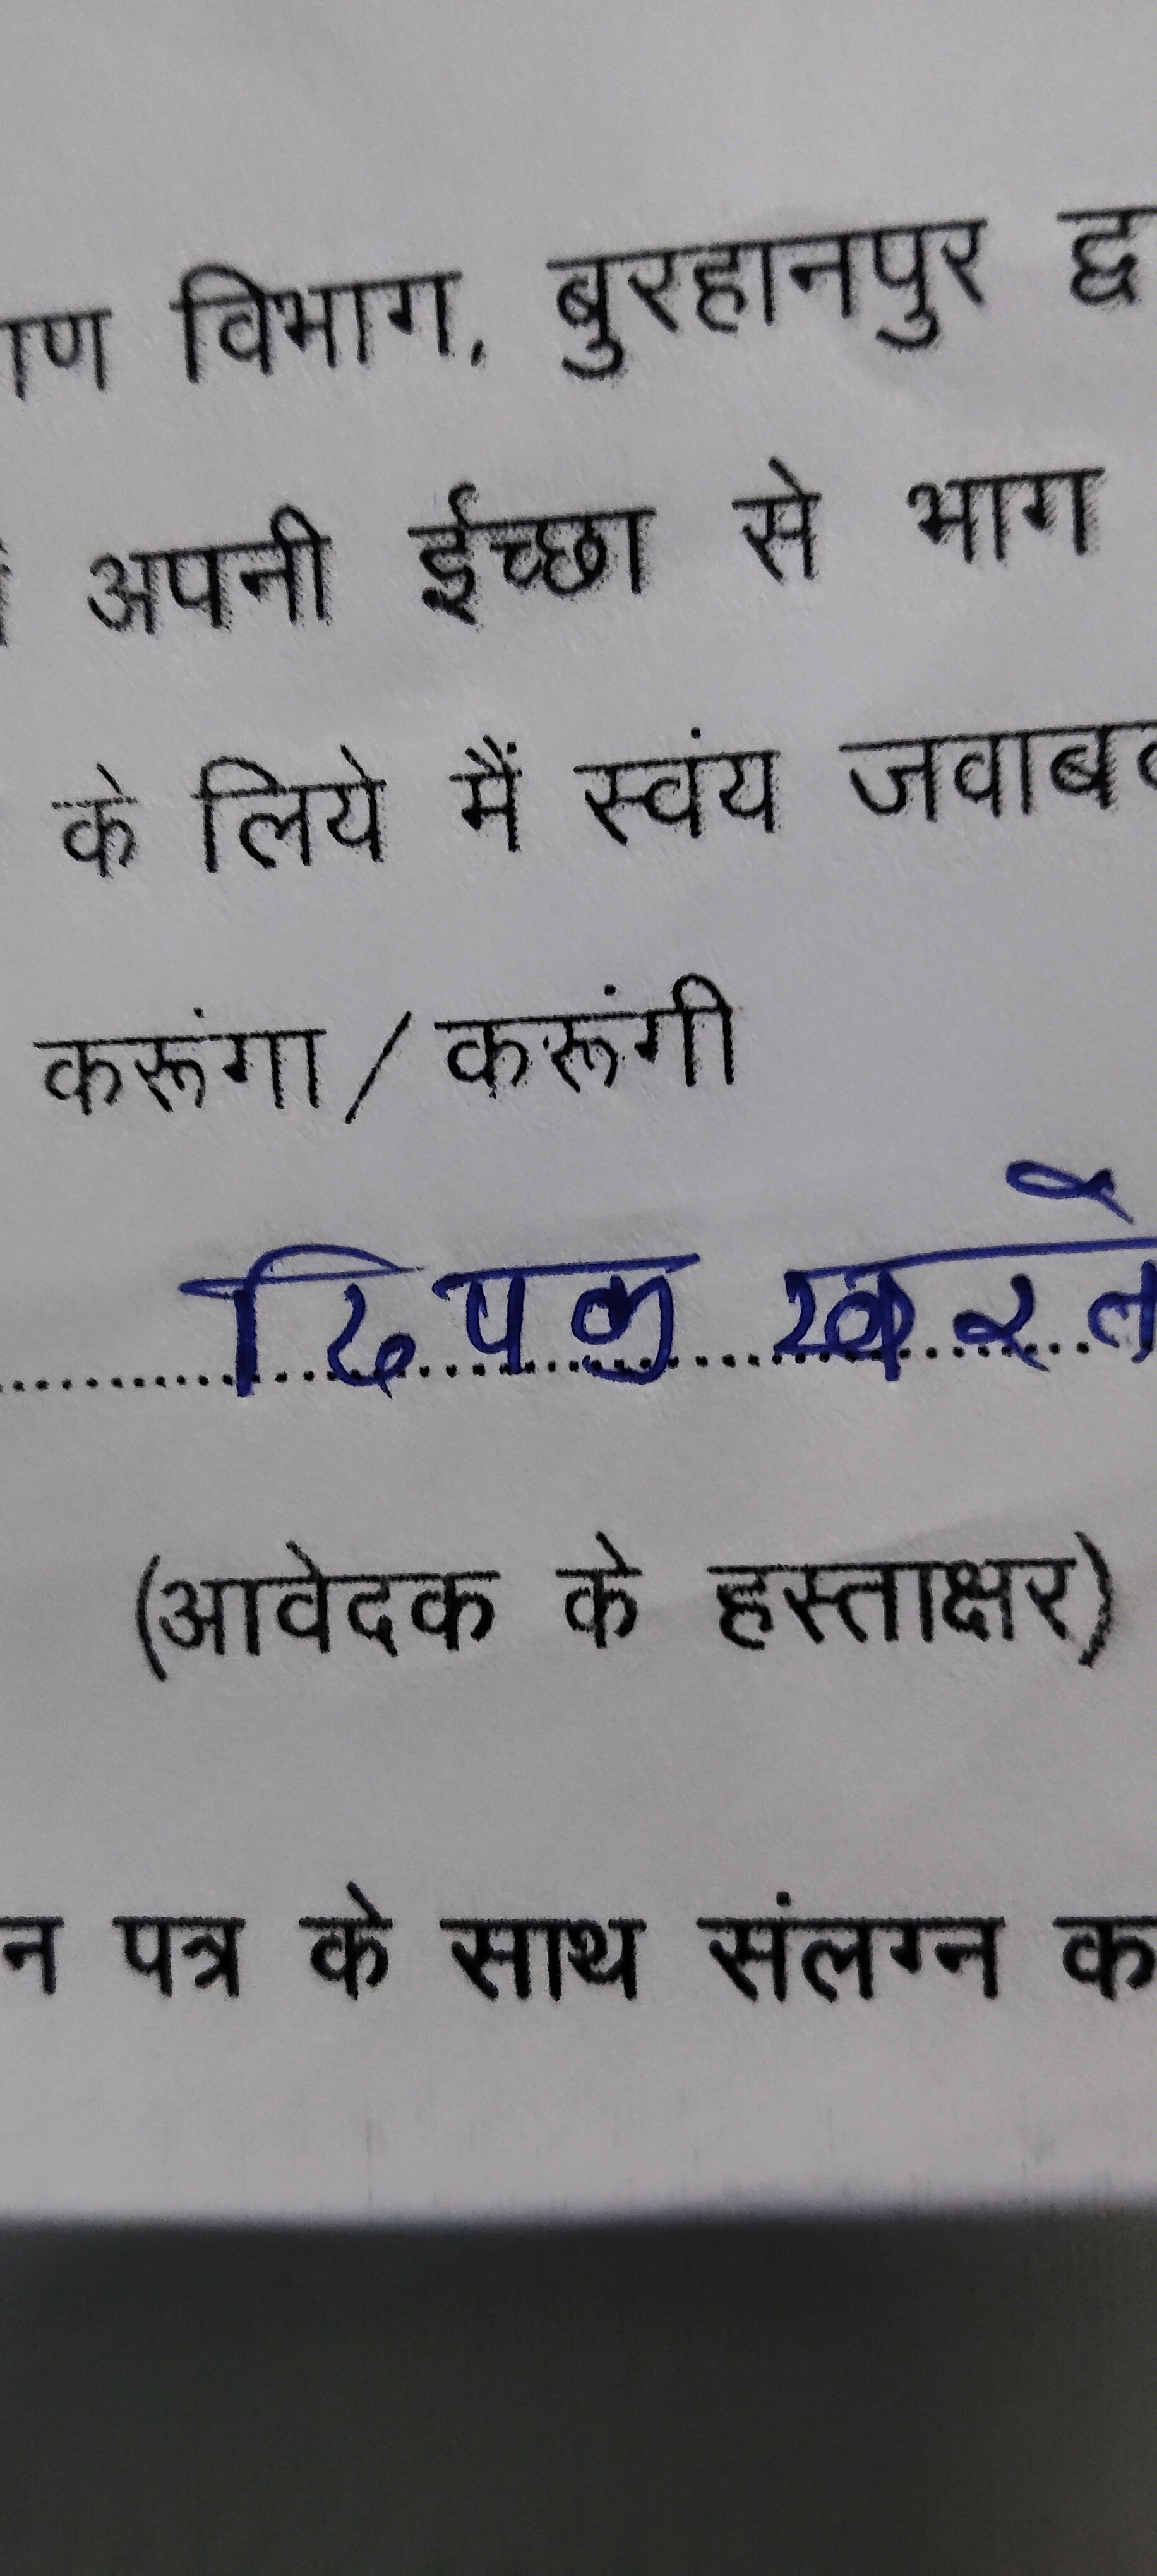 ाण विभाग, बुरहानपुर द्व
अपनी ईच्छा से भाग
के लिये मैं स्वंय जवाब
करूंगा / करूंगी
दिपक खरते
(आवेदक के हस्ताक्षर)
न पत्र के साथ संलग्न क